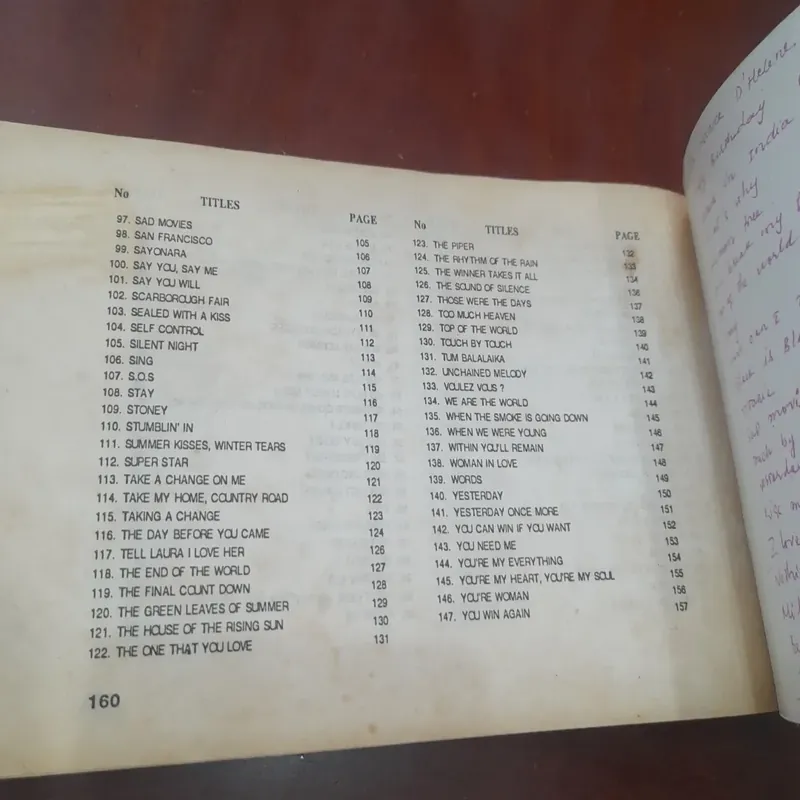 No TITLES PAGE
97. SAD MOVIES 105
98. SAN FRANCISCO 106
99. SAYONARA 107
100. SAY YOU, SAY ME 108
101. SAY YOU WILL 109
102. SCARBOROUGH FAIR 110
103. SEALED WITH A KISS 111
104. SELF CONTROL 112
105. SILENT NIGHT 113
106. SING 114
107. S.O.S 115
108. STAY 116
109. STONEY 117
110. STUMBLIN' IN 118
111. SUMMER KISSES, WINTER TEARS 119
112. SUPER STAR 120
113. TAKE A CHANGE ON ME 121
114. TAKE MY HOME, COUNTRY ROAD 122
115. TAKING A CHANGE 123
116. THE DAY BEFORE YOU CAME 124
117. TELL LAURA I LOVE HER 126
118. THE END OF THE WORLD 127
119. THE FINAL COUNT DOWN 128
120. THE GREEN LEAVES OF SUMMER 129
121. THE HOUSE OF THE RISING SUN 130
122. THE ONE THAT YOU LOVE 131
160
No TITLES PAGE
123. THE PIPER 132
124. THE RHYTHM OF THE RAIN 133
125. THE WINNER TAKES IT ALL 134
126. THE SOUND OF SILENCE 136
127. THOSE WERE THE DAYS 137
128. TOO MUCH HEAVEN 138
129. TOP OF THE WORLD 139
130. TOUCH BY TOUCH 140
131. TUM BALALAIKA 141
132. UNCHAINED MELODY 142
133. VOULEZ VOUS ? 143
134. WE ARE THE WORLD 144
135. WHEN THE SMOKE IS GOING DOWN 145
136. WHEN WE WERE YOUNG 146
137. WITHIN YOU'LL REMAIN 147
138. WOMAN IN LOVE 148
139. WORDS 149
140. YESTERDAY 150
141. YESTERDAY ONCE MORE 151
142. YOU CAN WIN IF YOU WANT 152
143. YOU NEED ME 153
144. YOU'RE MY EVERYTHING 154
145. YOU'RE MY HEART, YOU'RE MY SOUL 155
146. YOU'RE WOMAN 156
147. YOU WIN AGAIN 157
D'Helene
birthday
India
why
my
the world
can I
is
by
I love